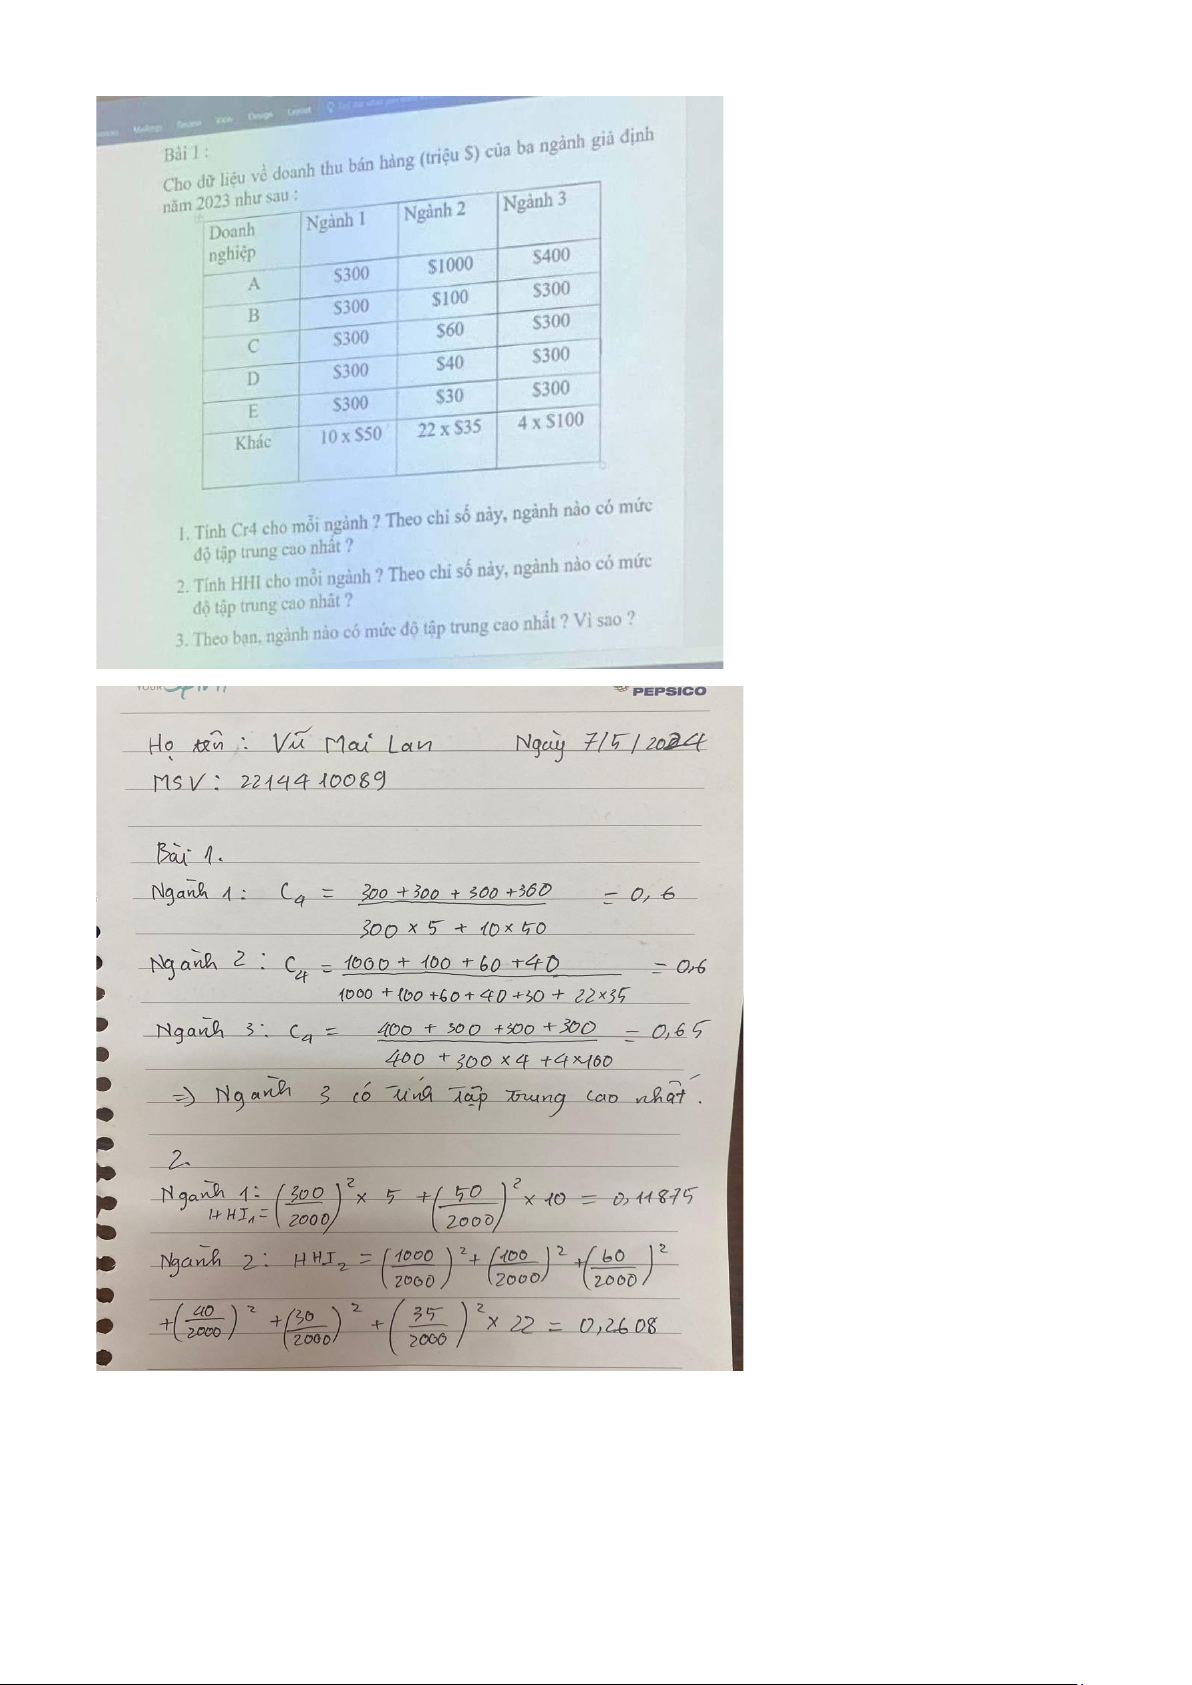 Mailings Review View Design Layout
Bài 1 :
Cho dữ liệu về doanh thu bán hàng (triệu $) của ba ngành giả định
năm 2023 như sau :
Doanh nghiệp Ngành 1 Ngành 2 Ngành 3
A $300 $1000 $400
B $300 $100 $300
C $300 $60 $300
D $300 $40 $300
E $300 $30 $300
Khác 10 x $50 22 x $35 4 x $100
1. Tính Cr4 cho mỗi ngành ? Theo chỉ số này, ngành nào có mức
độ tập trung cao nhất ?
2. Tính HHI cho mỗi ngành ? Theo chỉ số này, ngành nào có mức
độ tập trung cao nhất ?
3. Theo bạn, ngành nào có mức độ tập trung cao nhất ? Vì sao ?
YOUR Spirit PEPSICO
Họ tên : Vũ Mai Lan Ngày 7/5/2024
MSV : 2214410089
Bài 1.
Ngành 1: C4 = 300 + 300 + 300 + 300 / 300 × 5 + 10 × 50 = 0,6
Ngành 2 : C4 = 1000 + 100 + 60 + 40 / 1000 + 100 + 60 + 40 + 30 + 22×35 = 0,6
Ngành 3: C4 = 400 + 300 + 300 + 300 / 400 + 300 × 4 + 4×100 = 0,65
=> Ngành 3 có tính tập trung cao nhất.
2.
Ngành 1: HHI1 = (300/2000)² × 5 + (50/2000)² × 10 = 0,11875
Ngành 2: HHI2 = (1000/2000)² + (100/2000)² + (60/2000)²
+ (40/2000)² + (30/2000)² + (35/2000)² × 22 = 0,2608